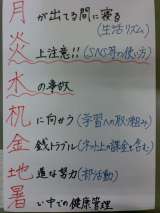 月が出てる間に寝る
(生活リズム)
炎上注意!!(SNS等の使い方)
木の事故
机に向かう(学習への取り組み)
金銭トラブル(ネット上の課金も含む)
地道な努力(部活動)
暑い中での健康管理